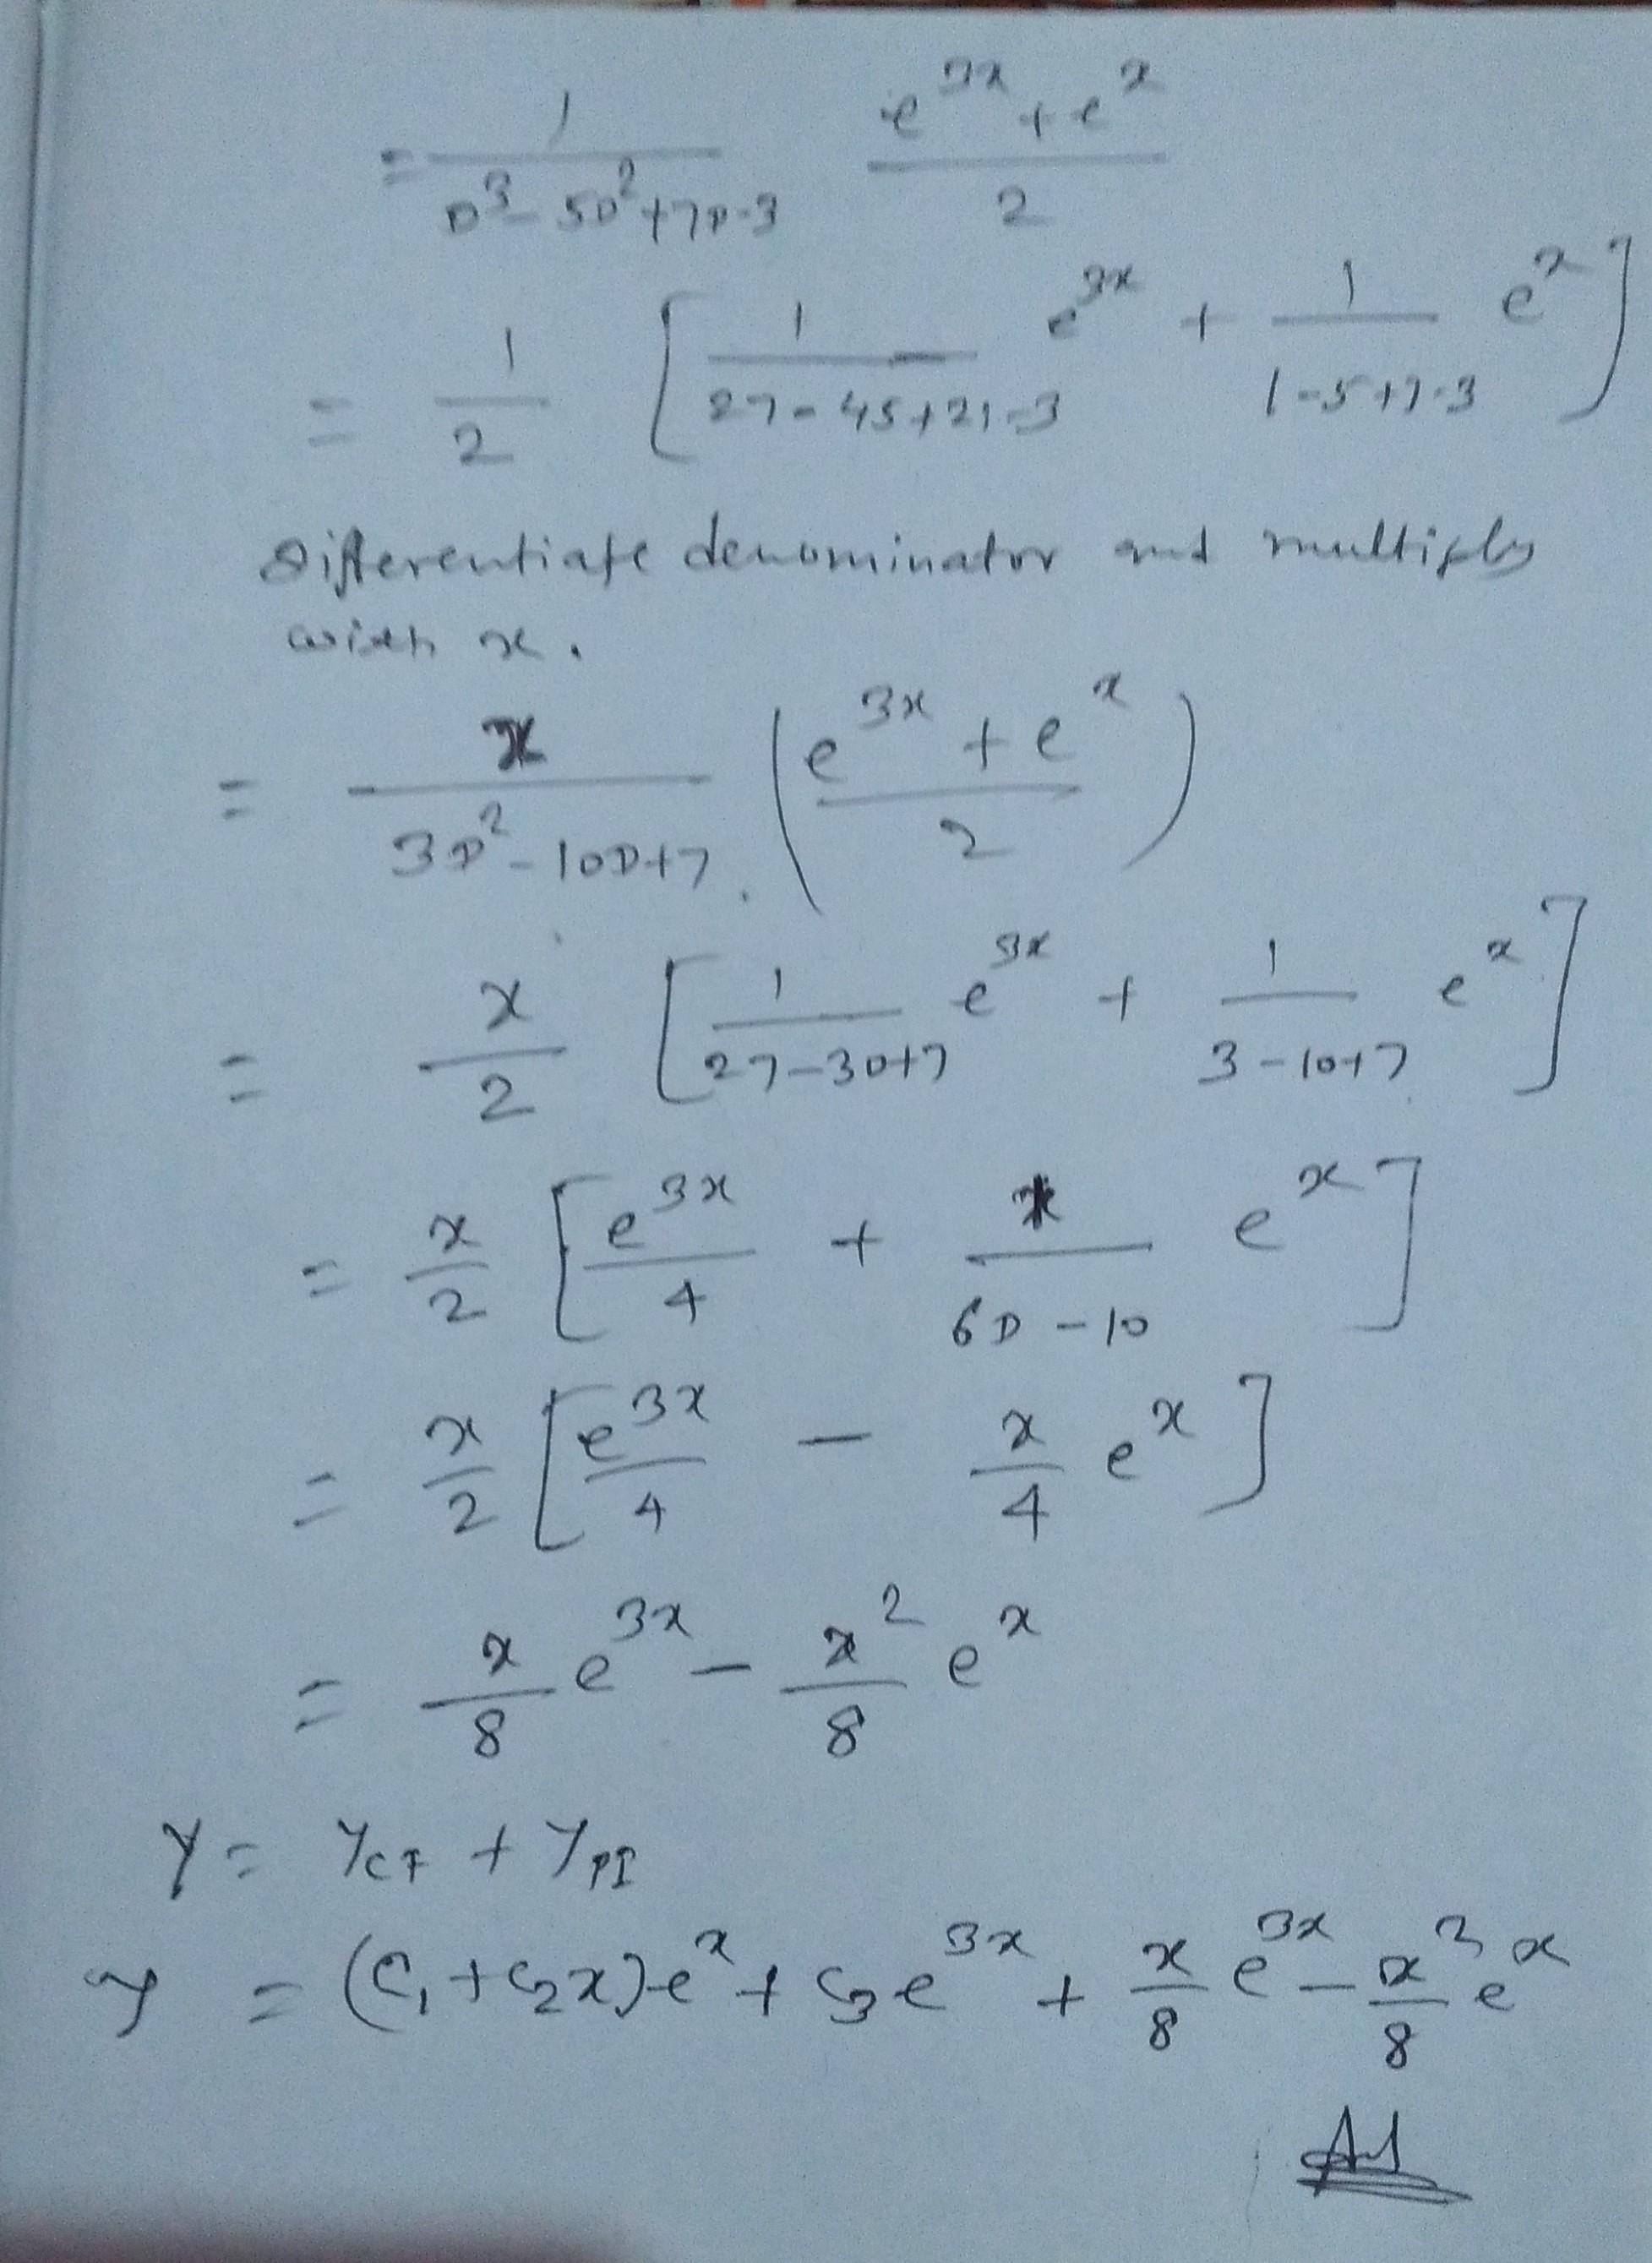 = 1/(D³-5D²+7D-3) (e^3x + e^x)/2
= 1/2 [1/(27-45+21-3) e^3x + 1/(1-5+7-3) e^x]
Differentiate denominator and multiply
with x.
= x/(3D²-10D+7) . ((e^3x + e^x)/2)
= x/2 [1/(27-30+7) e^3x + 1/(3-10+7) e^x]
= x/2 [e^3x/4 + x/(6D-10) e^x]
= x/2 [e^3x/4 - x/4 e^x]
= x/8 e^3x - x²/8 e^x
Y = Y_CF + Y_PI
y = (C₁+C₂x)e^x + C₃e^3x + x/8 e^3x - x²/8 e^x